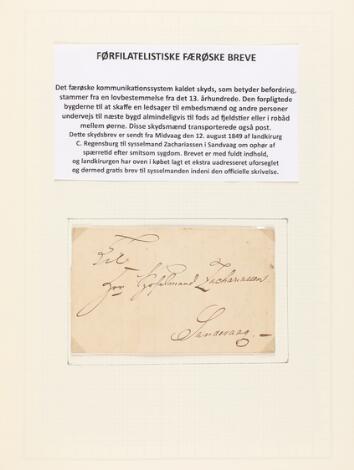 FØRFILATELISTISKE FÆRØSKE BREVE
Det færøske kommunikationssystem kaldet skyds, som betyder befordring,
stammer fra en lovbestemmelse fra det 13. århundrede. Den forpligtede
bygderne til at skaffe en ledsager til embedsmænd og andre personer
undervejs til næste bygd almindeligvis til fods ad fjeldstier eller i robåd
mellem øerne. Disse skydsmænd transporterede også post.
Dette skydsbrev er sendt fra Midvaag den 12. august 1849 af landkirurg
C. Regensburg til sysselmand Zachariassen i Sandvaag om ophør af
spærretid efter smitsom sygdom. Brevet er med fuldt indhold,
og landkirurgen har oven i købet lagt et ekstra uadresseret uforseglet
og dermed gratis brev til sysselmanden indeni den officielle skrivelse.
Til
Hr Sysselmand Zachariassen
Sandevaag